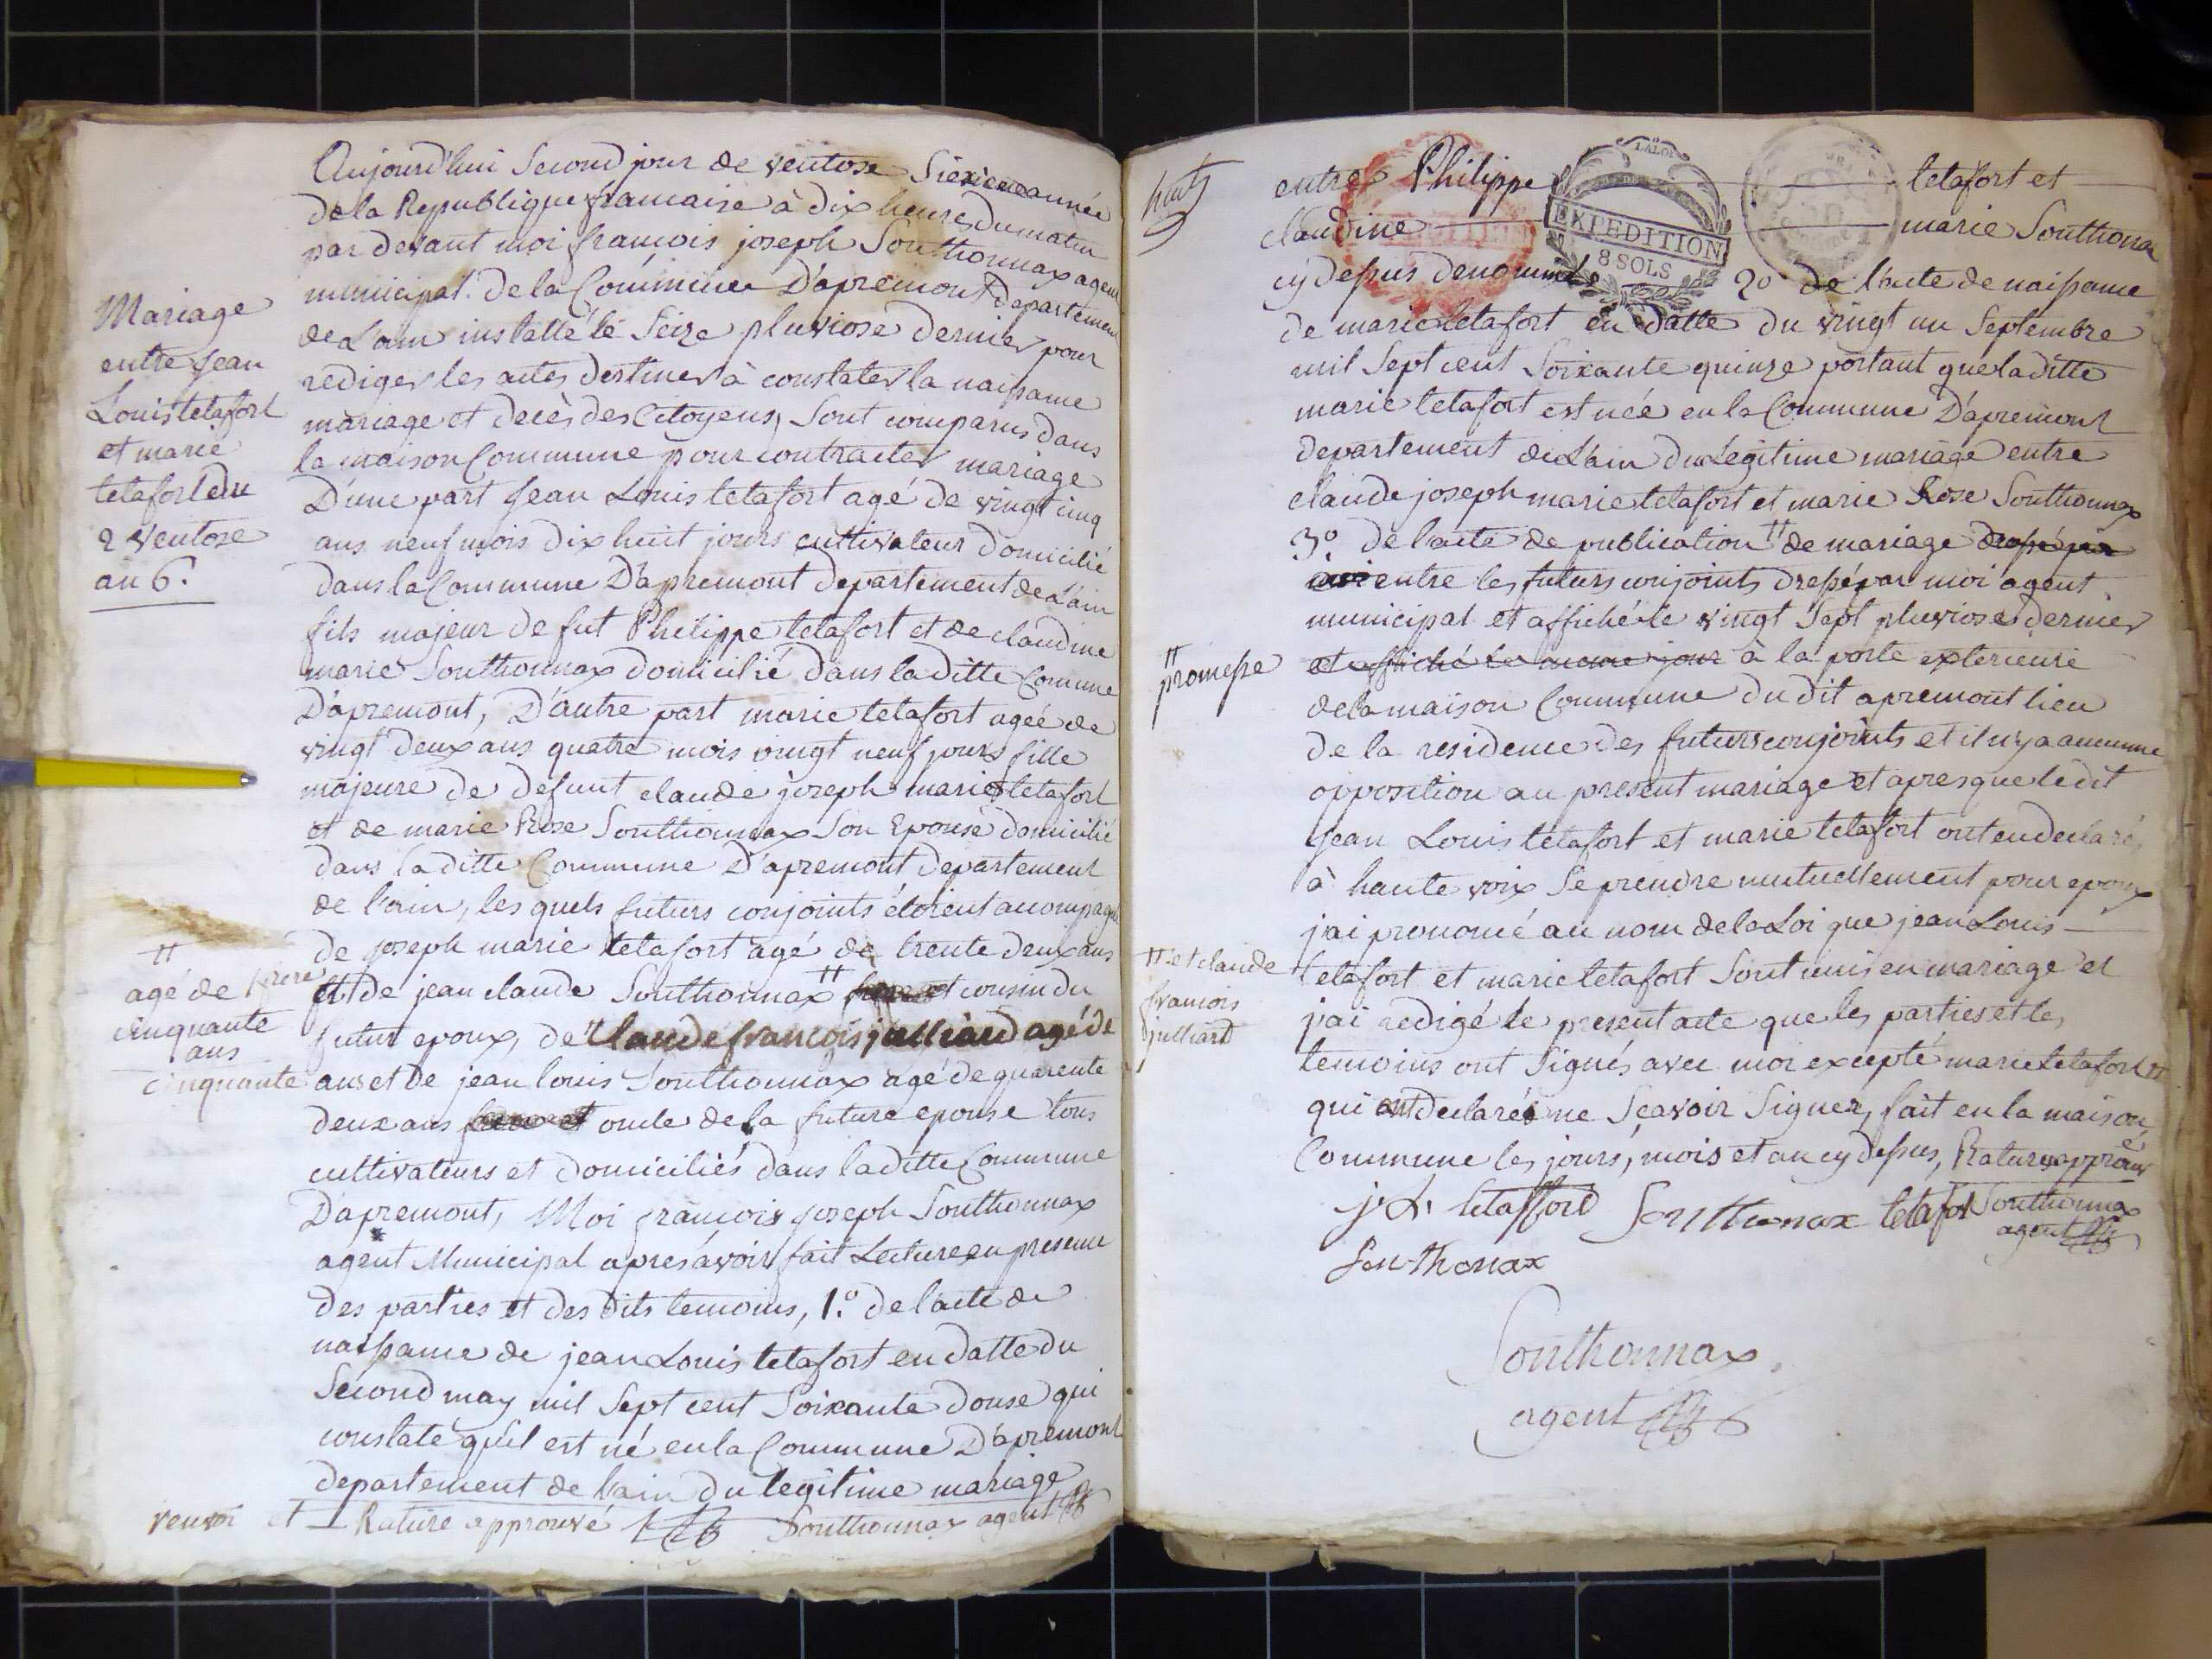 Mariage
entre jean
Louis letafort
et marie
letafort du
2 ventose
an 6.
Aujourd'hui Second jour de ventose Sixieme année
de la Republique francaise à dix heures du matin
par devant moi françois joseph Southonnax agent
municipal de la Commune D'apremont departement
de L'ain installé le Seize pluviose dernier pour
rediger les actes destinés à constater la naissance
mariage et decès des Citoyens, Sont comparus dans
la maison Commune pour contracter mariage
D'une part jean Louis letafort agé de vingt cinq
ans neuf mois dix huit jours cultivateur domicilié
dans la Commune D'apremont departement de L'ain
fils majeur de fut Philippe letafort et de claudine
marie Southonnax domicilié dans laditte Comune
D'apremont, D'autre part marie letafort ageé de
vingt deux ans quatre mois vingt neuf jours fille
majeure de defunt claude joseph marie letafort
et de marie Rose Southonnax Son Epouse domicilié
dans laditte Commune D'apremont departement
de l'ain, les quels futurs conjoints étoient acompagné
de joseph marie letafort agé de trente deux ans
frere
et de jean claude Southonnax # et cousin du
# agé de
cinquante
ans
futur epoux, de claude francois julliard agé de
cinquante ans et de jean louis Southonnax agé de quarente
deux ans oncle de la future epouse tous
cultivateurs et domiciliés dans laditte Commune
D'apremont, Moi francois joseph Southonnax
agent Municipal apres avoir fait Lecture en presence
des parties et des dits temoins, 1.° de l'acte de
naissance de jean Louis letafort en datte du
Second may mil Sept cent Soixante douse qui
constate qu'il est né en la Commune D'apremont
departement de l'ain du legitime mariage
renvoi et Rature approuvé Southonnax agent
huit
entre Philippe letafort et
claudine marie Southonax
cy dessus denommés 2° de l'acte de naissance
de marie letafort en datte du vingt un Septembre
mil Sept cent Soixante quinze portant que laditte
marie letafort est née en la Commune D'apremont
departement de L'ain du Légitime mariage entre
claude joseph marie letafort et marie Rose Southonnax
3°. de l'acte de publication # de mariage dressé par
moi entre les futurs conjoints dressé par moi agent
municipal et affiché le vingt Sept pluviose dernier
# promesse
et affiché le meme jour à la porte exterieure
de la maison Commune du dit apremont lieu
de la residence des futurs conjoints et il n'y a aucunne
opposition au present mariage et apres que ledit
jean Louis letafort et marie letafort ont eu declaré
à haute voix Se prendre mutuellement pour epoux
j'ai prononcé au nom de la Loi que jean Louis
letafort et marie letafort Sont unis en mariage et
j'ai redigé le present acte que les parties et les
temoins ont Signés avec moi excepté marie letafort #
# et claude
francois
julliard
qui ont declarés ne Sçavoir Signer, fait en la maison
Commune les jours, mois et an cy dessus, Ratures approuvé
j. L. letafford Southonax letafor Southonnax
agent
Southonax
Southonnax
agent
LA LOI
EXPEDITION
8 SOLS